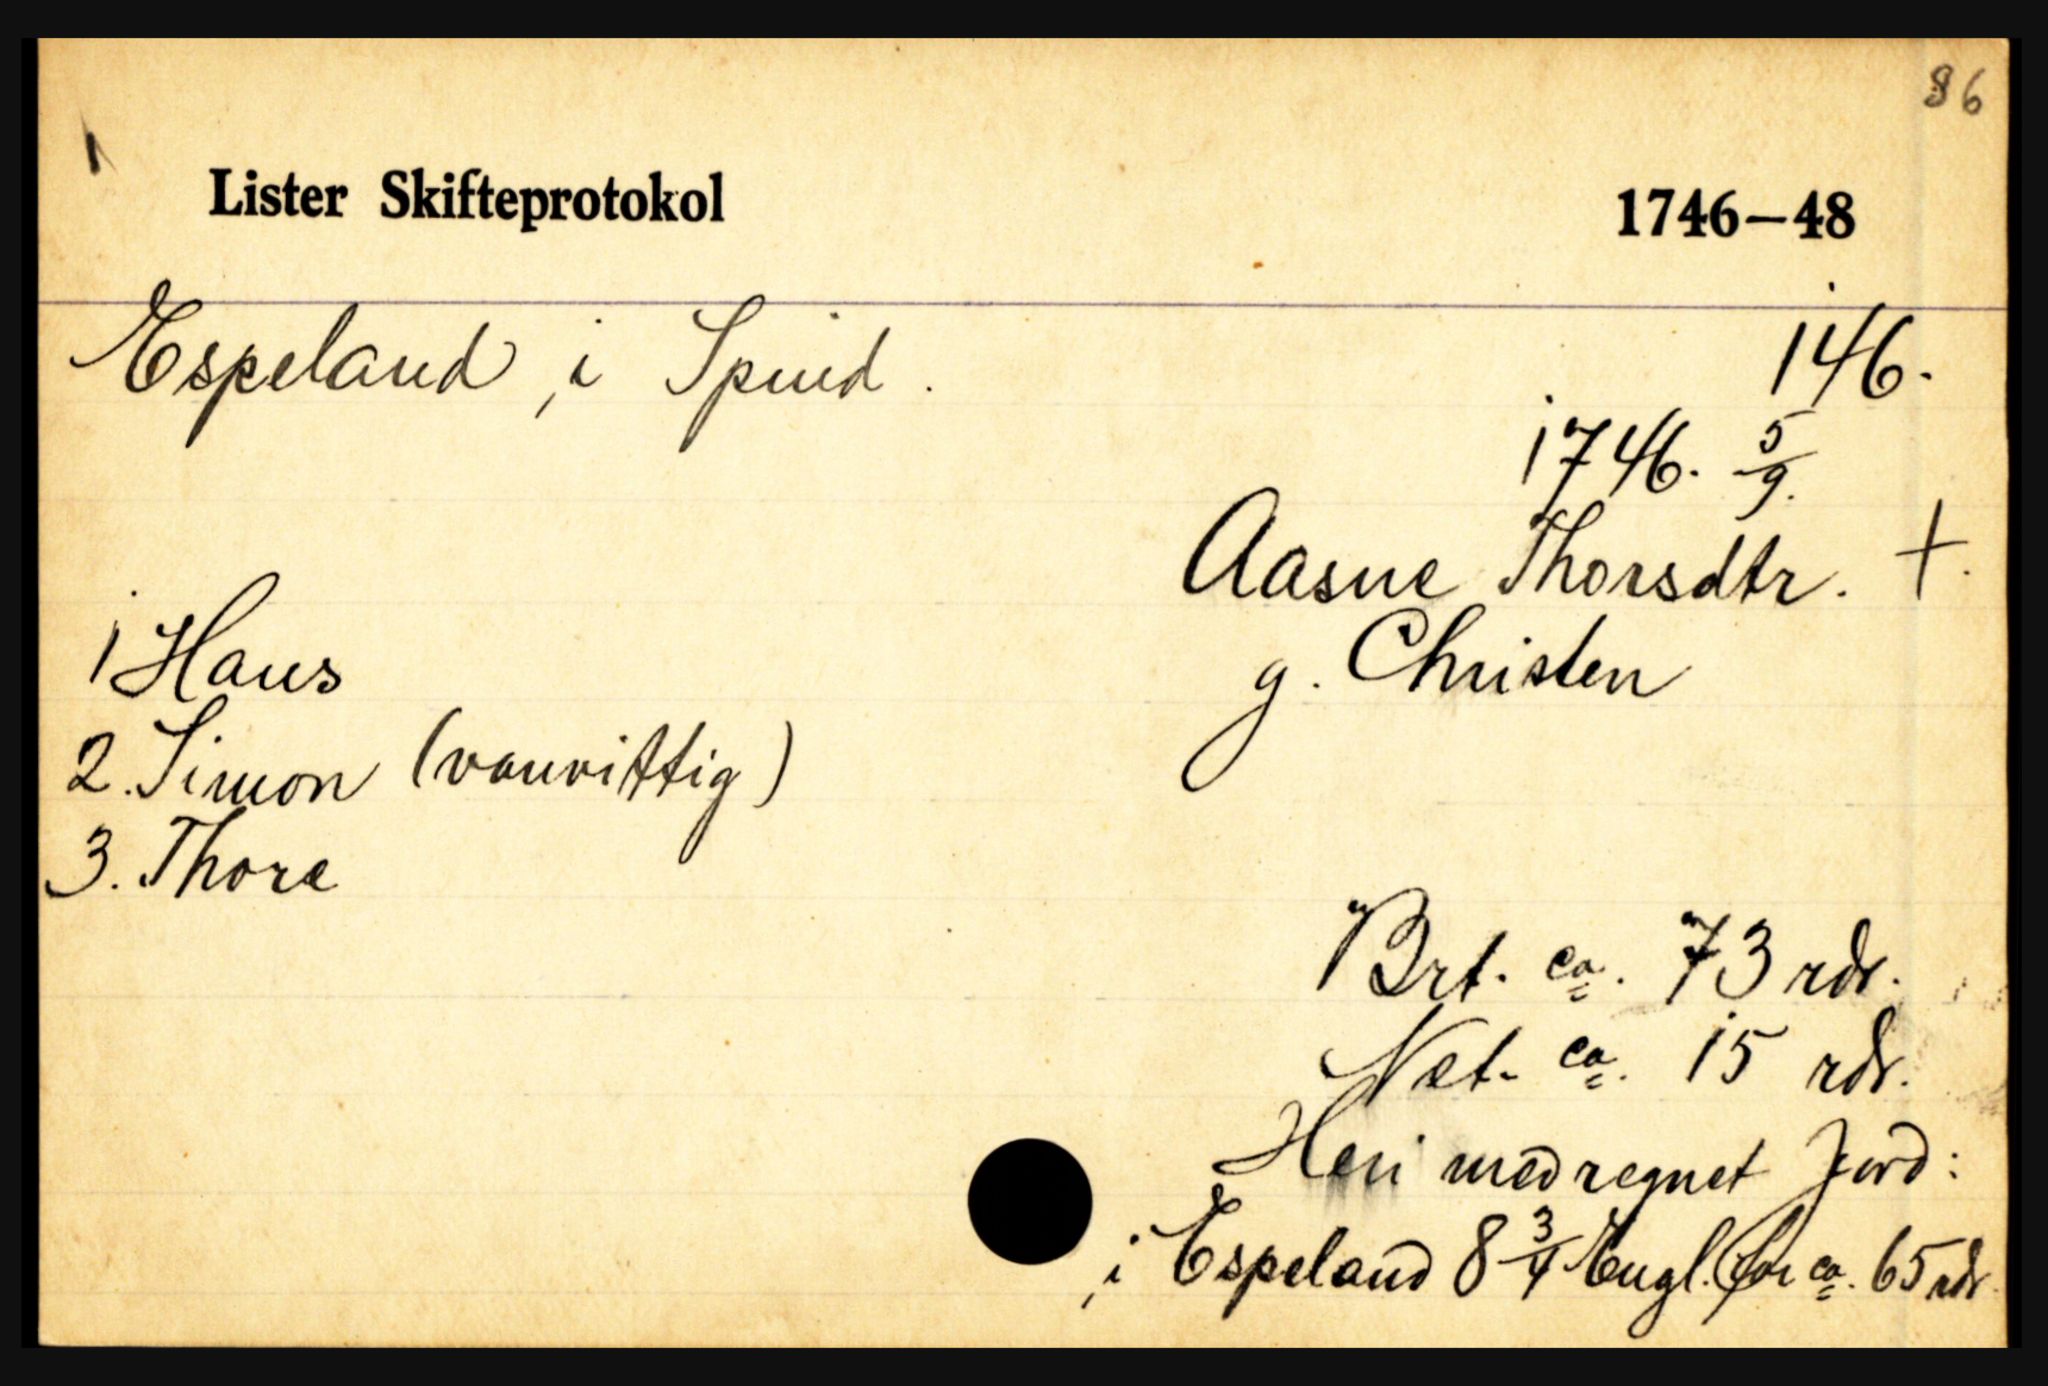 86
Lister Skifteprotokol 1746–48
Espeland, i Spind.
146.
1746. 5/9.
Aasne Thorsdtr. +.
g. Christen
1 Hans
2. Simon (vanvittig)
3. Thore
Brt. ca. 73 rdr.
Net. ca. 15 rdr.
Heri medregnet Jord:
i Espeland 8 3/4 Engl. for ca. 65 rdr.